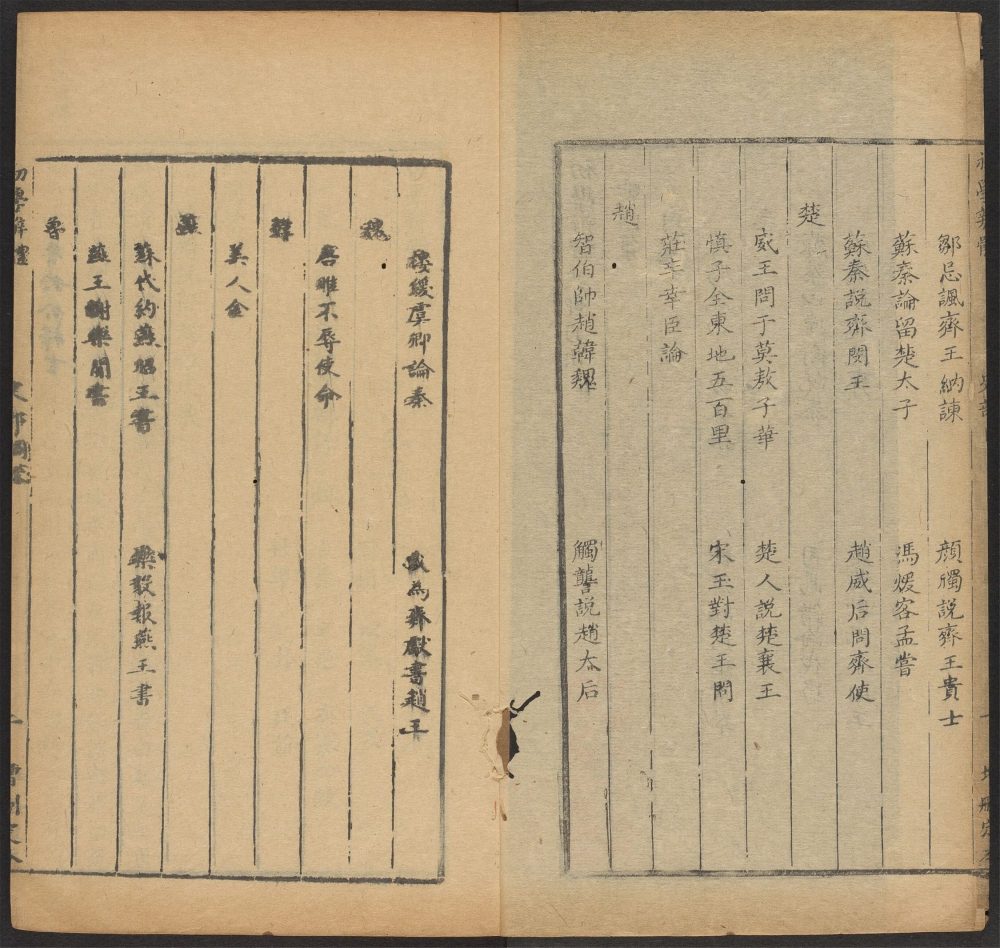 鄒忌諷齊王納諫　顏斶說齊王貴士
蘇秦論留楚太子　馮煖客孟嘗
蘇秦説齊閔王　趙威后問齊使
楚
威王問于莫敖子華　楚人説楚襄王
慎子全東地五百里　宋玉對楚王問
莊辛幸臣論
趙
智伯帥趙韓魏　觸讋説趙太后
樓緩虞卿論秦　或為齊獻書趙王
魏
唐雎不辱使命
韓
美人金
燕
蘇代約燕昭王書　樂毅報燕王書
燕王謝樂閒書
魯
初學辯體